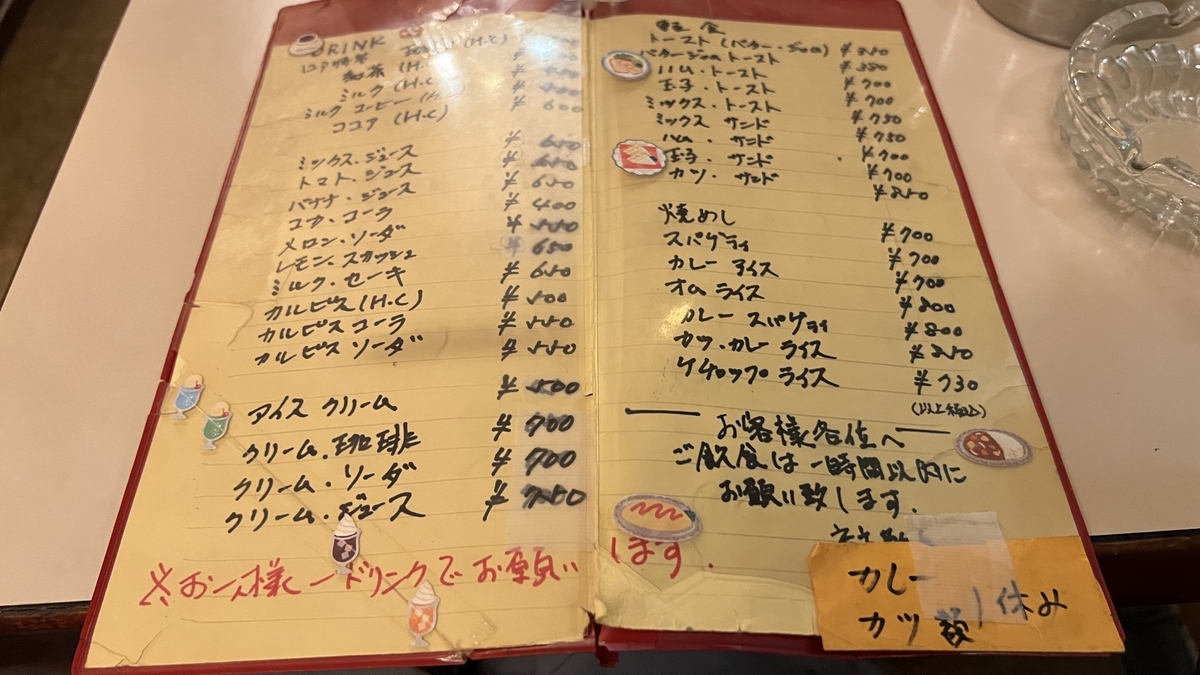 DRINK
紅茶 (H.C)
ミルク (H.C)
ミルク コーヒー (H.C)
ココア (H.C) ¥600
ミックス.ジュース ¥650
トマト.ジュース ¥650
バナナ.ジュース ¥650
コカ.コーラ ¥400
メロン.ソーダ ¥550
レモン.スカッシュ ¥650
ミルク.セーキ ¥650
カルピス (H.C) ¥500
カルピス コーラ ¥550
カルピス ソーダ ¥550
アイス クリーム ¥500
クリーム.珈琲 ¥700
クリーム.ソーダ ¥700
クリーム.ジュース ¥750
※お一人様一ドリンクでお願いします.
軽食
トースト
トースト
ハム.トースト ¥700
玉子.トースト ¥700
ミックス.トースト ¥750
ミックス サンド ¥750
ハム.サンド ¥700
玉子.サンド ¥700
カツ.サンド ¥850
焼めし ¥700
スパゲティ ¥700
カレー ライス ¥700
オムライス ¥800
カレー スパゲティ ¥800
カツ.カレー ライス ¥850
ケチャップライス ¥730
(以上税込)
お客様各位へ
ご飲食は一時間以内に
お願い致します.
カレー
カツ 類
休み